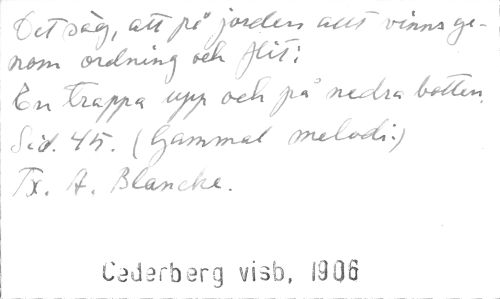 Det säg, att på jorden allt vinns ge-
nom ordning och flit:
En trappa upp och på nedra botten.
Sid. 45. (Gammal melodi.)
Tx. A. Blanche.
Cederberg visb, 1906